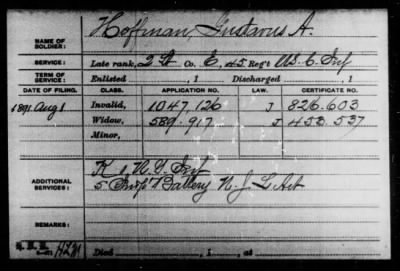 Hoffman, Gustavus A.
NAME OF SOLDIER:
SERVICE: Late rank, 2 Lt Co. E, 45 Reg't U.S.C. Inf
TERM OF SERVICE: Enlisted , 1 Discharged , 1
DATE OF FILING. CLASS. APPLICATION NO. LAW. CERTIFICATE NO.
1891 Aug 1 Invalid, 1047.126 J 826.603
Widow, 589.917 J 453.537
Minor,
K 2, N.Y. Inf
ADDITIONAL SERVICES: 5 Battery N.J. L Art
REMARKS:
Died , 1 , at